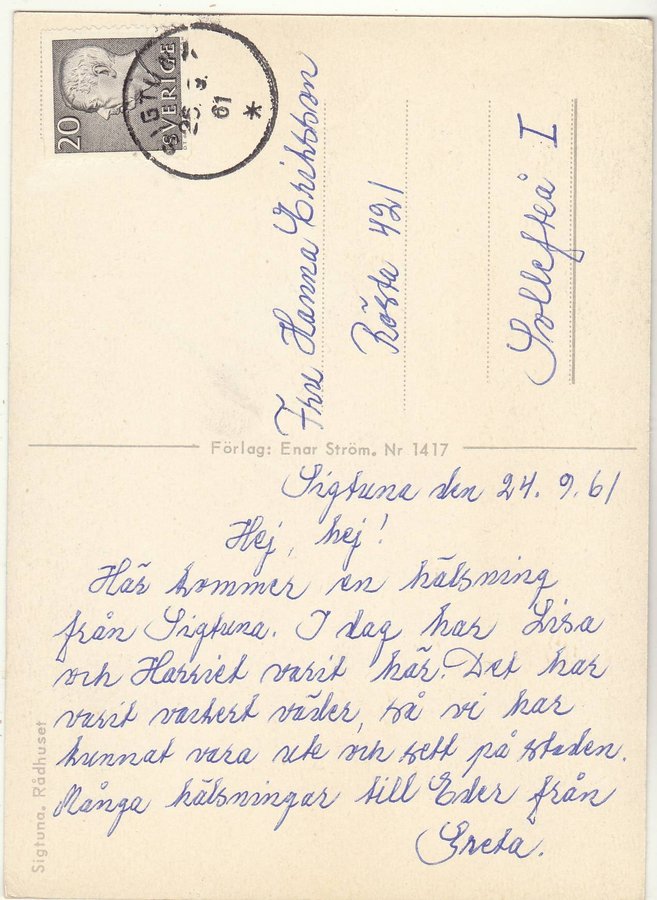 20
SVERIGE
SIGTUNA
25. 9.
61
*
Fru Hanna Eriksson
Rösta 421
Sollefteå I
Förlag: Enar Ström. Nr 1417
Sigtuna den 24. 9. 61
Hej, hej!
Här kommer en hälsning
från Sigtuna. I dag har Lisa
och Harriet varit här. Det har
varit vackert väder, så vi har
kunnat vara ute och sett på staden.
Många hälsningar till Eder från
Greta.
Sigtuna. Rådhuset